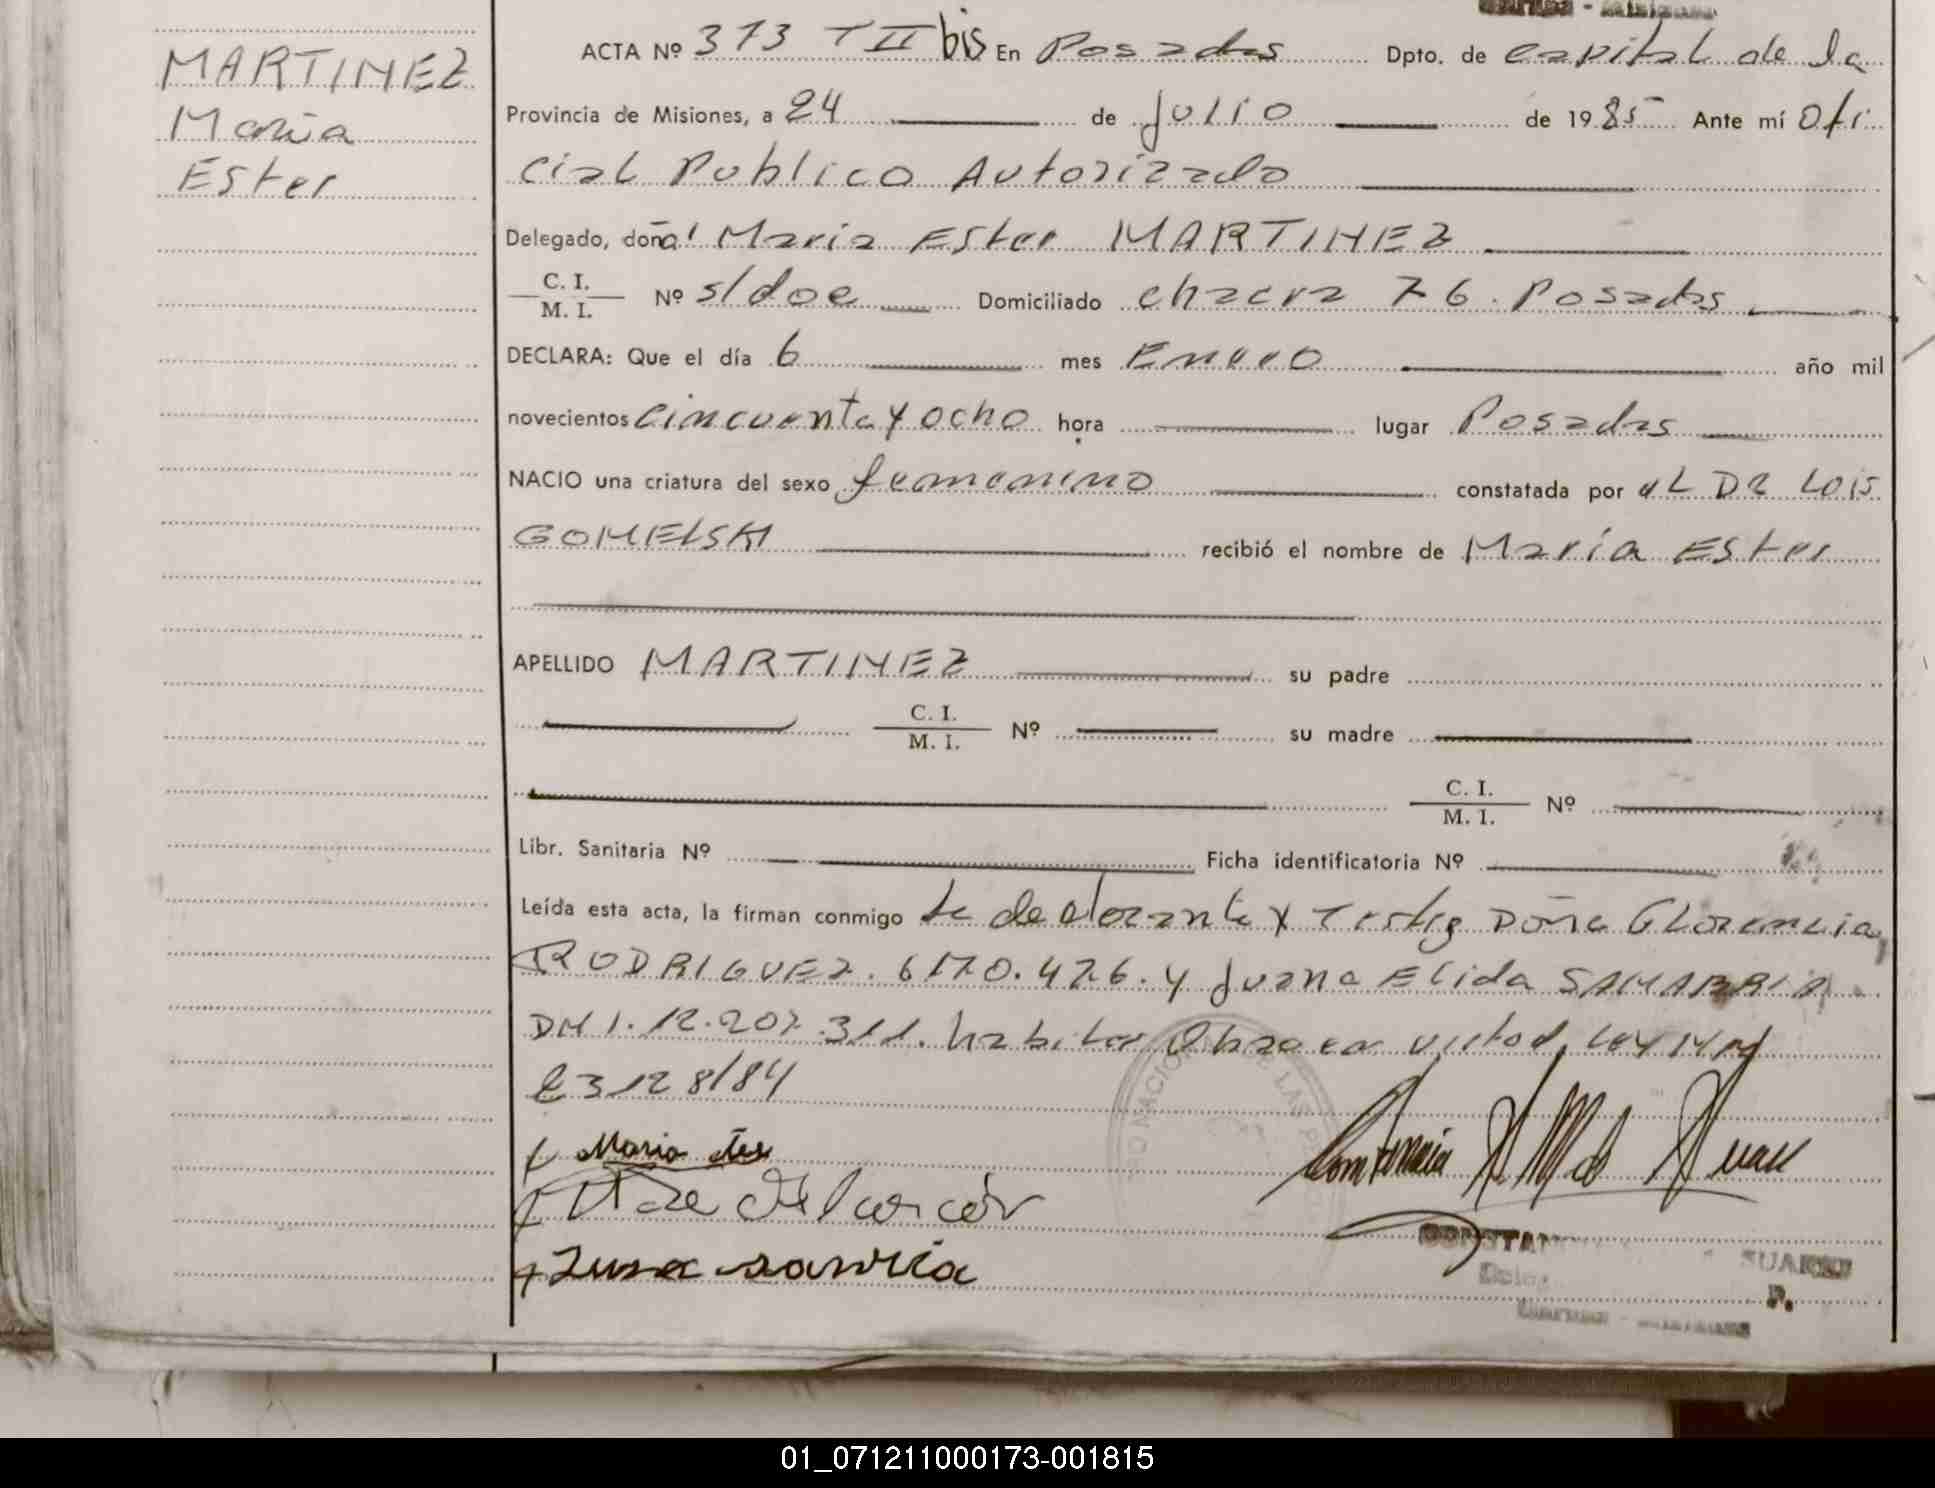 MARTINEZ
Maria
Ester
ACTA Nº 373 T II bis En Posadas Dpto. de capital de la
Provincia de Misiones, a 24 de Julio de 1985 Ante mí Ofi
cial Publico Autorizado
Delegado, doña María Ester MARTINEZ
C. I.
M. I. Nº s/doc Domiciliado chacra 76. Posadas
DECLARA: Que el día 6 mes Enero año mil
novecientos cincuenta y ocho hora lugar Posadas
NACIO una criatura del sexo femenino constatada por el DR LUIS
GOMELSKI recibió el nombre de María Ester
APELLIDO MARTINEZ su padre
C. I.
M. I. Nº su madre
C. I.
M. I. Nº
Libr. Sanitaria Nº Ficha identificatoria Nº
Leída esta acta, la firman conmigo la declarante y Testig Doña
RODRIGUEZ. y Juana Elida SANABRIA
DNI. 12.207.311. virtud Ley
23128/84
Maria
CONSTAN SUAREZ
01_071211000173-001815